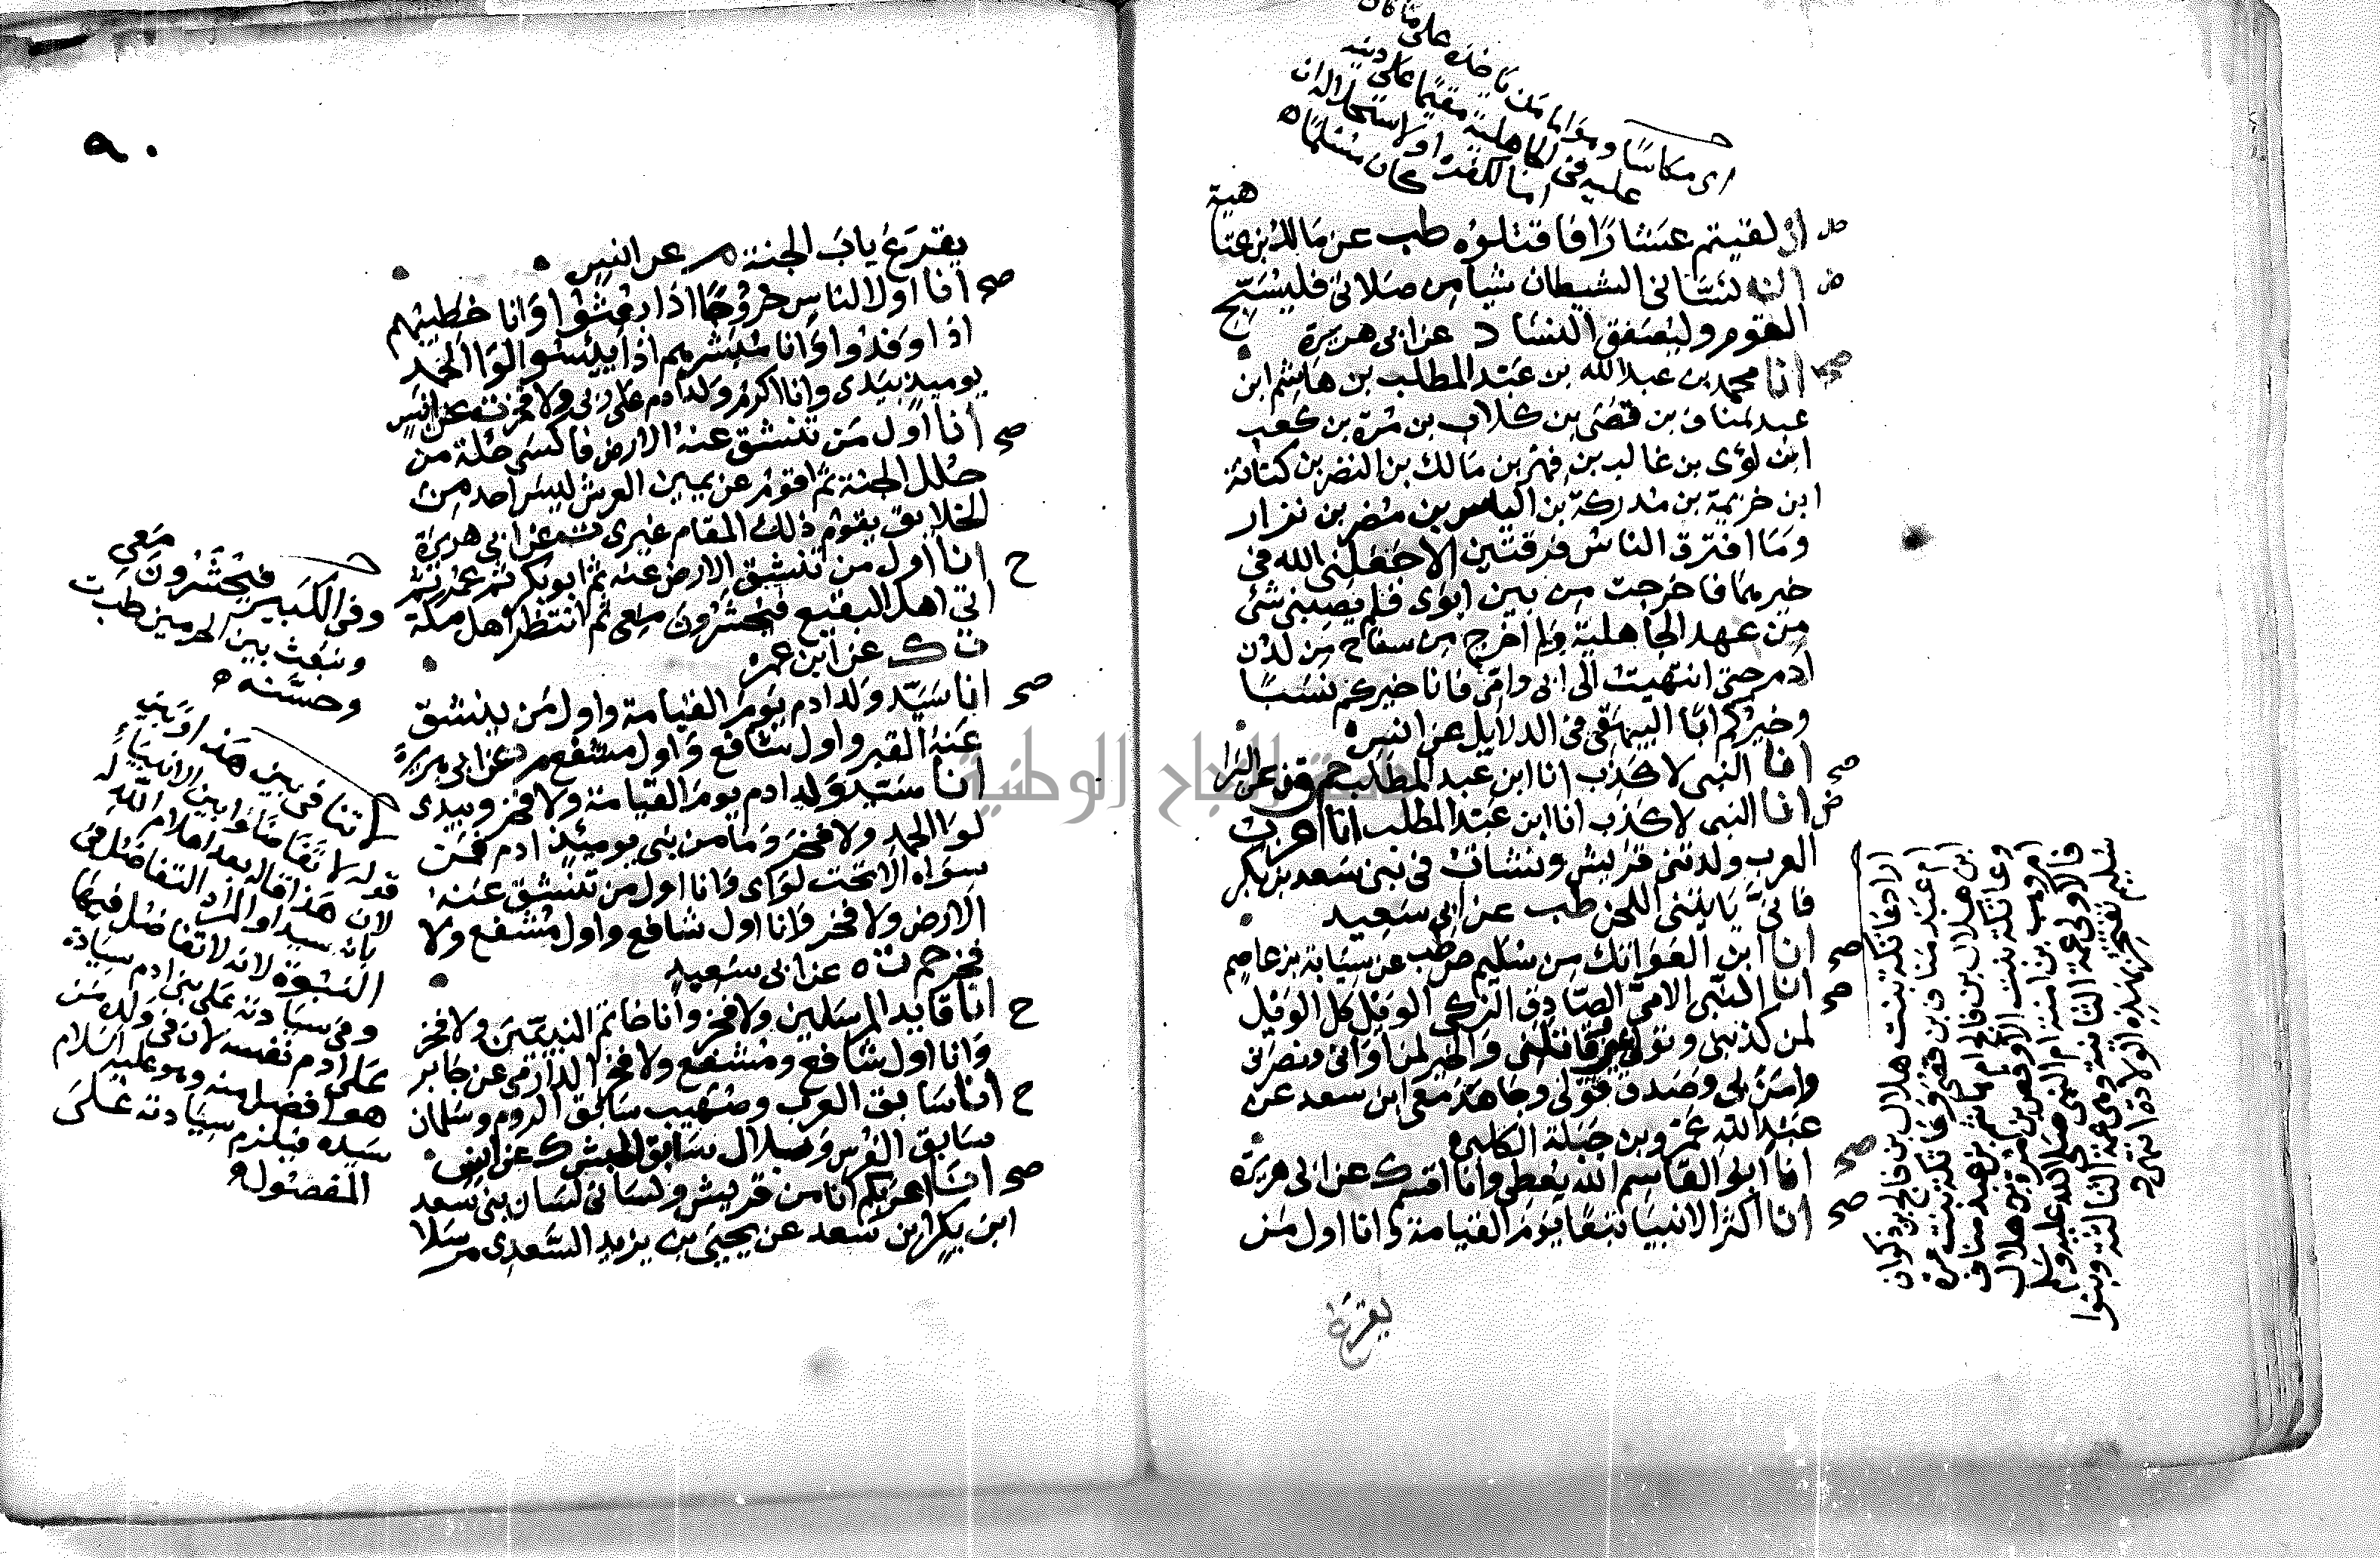 اى مكاسا وهذا ما من ياخذه على ما كان
عليه فى الجاهلية مقيما على دينه
اما لكفره او لاستحلاله ان
كان مسلما ه
هية
ان لقيتم عشارا فاقتلوه طب عن مالك بن عتا
ض ان نسانى الشيطان شيا من صلاتى فليسبح
القوم وليصفق النساء د عن ابى هريرة
صح انا محمد بن عبد الله بن عبد المطلب بن هاشم ابن
عبد مناف بن قصى بن كلاب بن مرة بن كعب
ابن لؤى بن غالب بن فهر بن مالك بن النضر بن كنانة
ابن خزيمة بن مدركة بن الياس بن مضر بن نزار
وما افترق الناس فرقتين الا جعلنى الله فى
خيرهما فاخرجت من بين ابوى فلم يصبنى شئ
من عهد الجاهلية ولم اخرج من سفاح من لدن
ادم حتى انتهيت الى ابى وامى فانا خيركم نسبا
وخيركم ابا البيهقى فى الدلايل عن انس
صح انا النبى لا كذب انا ابن عبد المطلب حم ق ن عن البرا
ض انا النبى لا كذب انا ابن عبد المطلب انا اعرب
العرب ولدتنى قريش ونشات فى بنى سعد بن بكر
فانى ياتينى اللحن طب عن ابى سعيد
صح انا ابن العواتك من سليم ص طب عن سيابة بن عاصم
صح انا النبى الامى الصادق الزكى الويل كل الويل
لمن كذبنى وتولى عنى وقاتلنى والخير لمن اوانى ونصرنى
وامن بى وصدق قولى وجاهد معى ابن سعد عن
عبد الله عمرو بن جبلة الكلبى
صح انا ابو القاسم الله يعطى وانا اقسم ك عن ابى هريرة
صح انا اكثر الانبيا تبعا يوم القيامة وانا اول من
يقرع
اراد عاتكة بنت هلال بن فالج بن ذكوان
ام عبد مناف بن قصى وعاتكة بنت مرة
بن هلال بن فالج ام هاشم بن عبد مناف
وعاتكة بنت الاوقص بن مرة بن هلال
ام وهب بن امنة ام النبى صلى الله عليه وسلم
فالاولى عمة الثانية وهى عمة الثالثة وبنوا
سليم تفتخر بهذه الولادة انتهى
جامعة النجاح الوطنية
٩٠
يقرع باب الجنة م عن انس
صح انا اول الناس خروجا اذا بعثوا وانا خطيبهم
اذا وفدوا وانا مبشرهم اذا ييئسوا لوا الحمد
يوميذ بيدى وانا اكرم ولد ادم على ربى ولا فخر ت عن انس
صح انا اول من تنشق عنه الارض فاكسى حلة من
حلل الجنة ثم اقوم عن يمين العرش ليس احد من
الخلايق يقوم ذلك المقام غيرى ت عن ابى هريرة
ح انا اول من تنشق الارض عنه ثم ابو بكر ثم عمر ثم
اتى اهل البقيع فيحشرون معى ثم انتظر اهل مكة
ت ك عن ابن عمر
صح انا سيد ولد ادم يوم القيامة واول من ينشق
عنه القبر واول شافع واول مشفع م د عن ابى هريرة
انا سيد ولد ادم يوم القيامة ولا فخر وبيدى
لوا الحمد ولا فخر وما من نبى يوميئذ ادم فمن
سواه الا تحت لواى وانا اول من تنشق عنه
الارض ولا فخر وانا اول شافع واول مشفع ولا
فخر حم ت ه عن ابى سعيد
ح انا قايد المرسلين ولا فخر وانا خاتم النبيين ولا فخر
وانا اول شافع ومشفع ولا فخر الدارمى عن جابر
ح انا سابق العرب وصهيب سابق الروم وسلمان
سابق الفرس وبلال سابق الحبش ك عن انس
صح انا اعربكم انا من قريش ولسانى لسان بنى سعد
ابن بكر ابن سعد عن يحيى بن يزيد السعدى مرسلا
وفى الكبير فيحشرون معى
ونبعث بين الحرمين طب ت
وحسنه ه
لا تنافى بين هذا وبين
قوله لا تفاضلوا بين الانبياء
لان هذا قاله بعد اعلام الله له
بانه سيد او المراد التفاضل فى
النبوة لانه لا تفاضل فيها
وفى سيادته على بنى ادم سيادة
على ادم نفسه لان فى ولده من
هو افضل منه وهو عليه السلام
سيده فيلزم سيادته على
المفضول ه